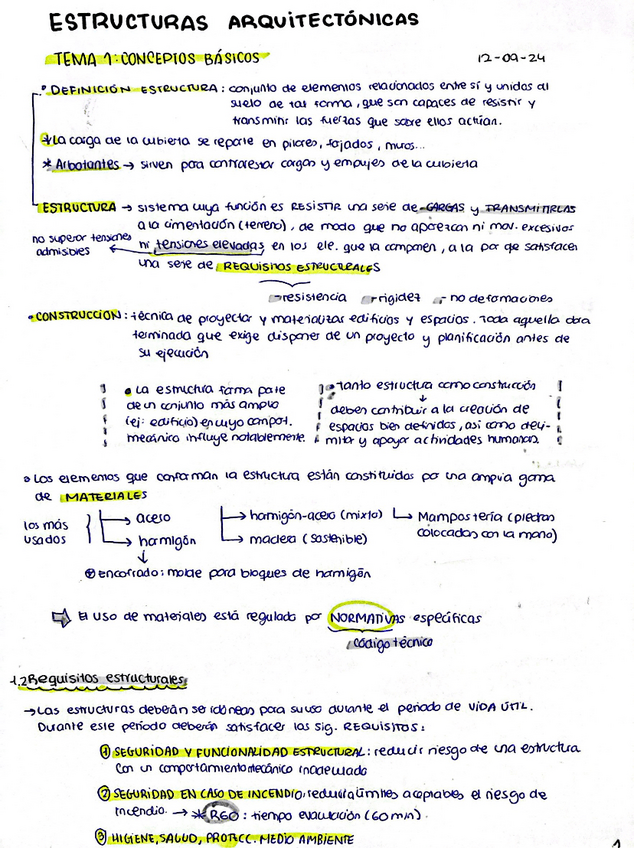 ESTRUCTURAS ARQUITECTÓNICAS
TEMA 1: CONCEPTOS BÁSICOS
12-09-24
• DEFINICIÓN ESTRUCTURA: conjunto de elementos relacionados entre sí y unidos al
suelo de tal forma, que son capaces de resistir y
transmitir las fuerzas que sobre ellos actúan.
* La carga de la cubierta se reparte en pilares, forjados, muros...
* Arbotantes → sirven para contrarrestar cargas y empujes de la cubierta
ESTRUCTURA → sistema cuya función es RESISTIR una serie de CARGAS y TRANSMITIRLAS
a la cimentación (terreno), de modo que no aparezcan ni mov. excesivos
no superar tensiones admisibles ← ni tensiones elevadas en los ele. que la componen, a la par de satisfacer
una serie de REQUISITOS ESTRUCTURALES
- resistencia - rigidez - no deformaciones
• CONSTRUCCIÓN: técnica de proyectar y materializar edificios y espacios. Toda aquella obra
terminada que exige disponer de un proyecto y planificación antes de
su ejecución
• La estructura forma parte
de un conjunto más amplio
(ej: edificio) en cuyo comport.
mecánico influye notablemente.
• Tanto estructura como construcción
↓
deben contribuir a la creación de
espacios bien definidos, así como deli-
mitar y apoyar actividades humanas.
• Los elementos que conforman la estructura están constituidos por una amplia gama
de MATERIALES
los más
usados
→ acero
→ hormigón
→ hormigón-acero (mixto)
→ madera (sostenible)
→ Mampostería (piedras
colocadas con la mano)
↓
⊕ encofrado: molde para bloques de hormigón
⇨ El uso de materiales está regulado por NORMATIVAS específicas
código técnico
1.2 Requisitos estructurales
→ Las estructuras deberán ser idóneas para su uso durante el periodo de VIDA ÚTIL.
Durante este periodo deberán satisfacer los sig. REQUISITOS:
① SEGURIDAD Y FUNCIONALIDAD ESTRUCTURAL: reducir riesgo de una estructura
con un comportamiento mecánico inadecuado
② SEGURIDAD EN CASO DE INCENDIO: reducir a límites aceptables el riesgo de
incendio. → * R60: tiempo evacuación (60 min).
③ HIGIENE, SALUD, PROTECC. MEDIO AMBIENTE
1